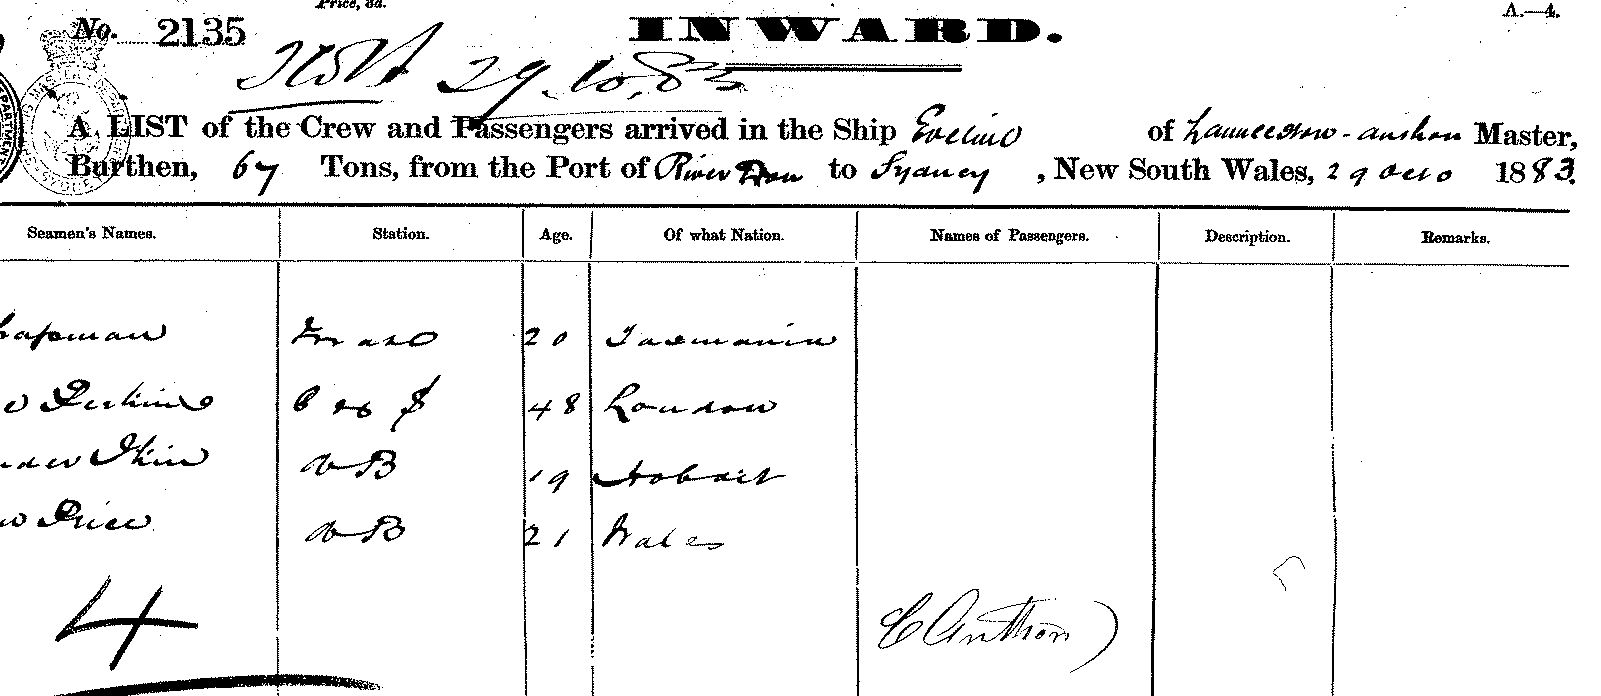 Price, 8d.
A.—4.
No. 2135 INWARD.
29.10.83
A LIST of the Crew and Passengers arrived in the Ship of Launceston Master,
Burthen, 67 Tons, from the Port of River Don to Sydney, New South Wales, 29 Octo 1883.
Seamen's Names. Station. Age. Of what Nation. Names of Passengers. Description. Remarks.
hapman Mate 20 Tasmania
Perkins 48 London
AB 19 Hobart
Price AB 21 Wales
4
C Anthon